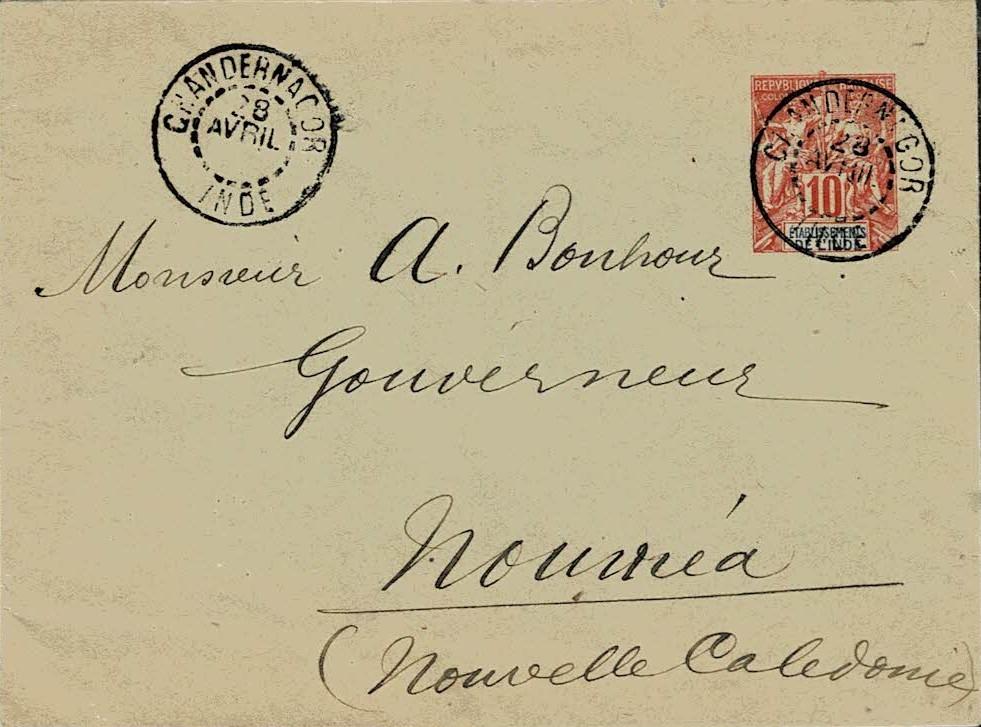 CHANDERNAGOR
28
AVRIL
INDE
REPVBLIQVE FRANÇAISE
CHANDERNAGOR
28
AVRIL
10
ETABLISSEMENTS
DE L'INDE
Monsieur A. Bonhour
Gouverneur
Nouméa
(Nouvelle Caledonie)